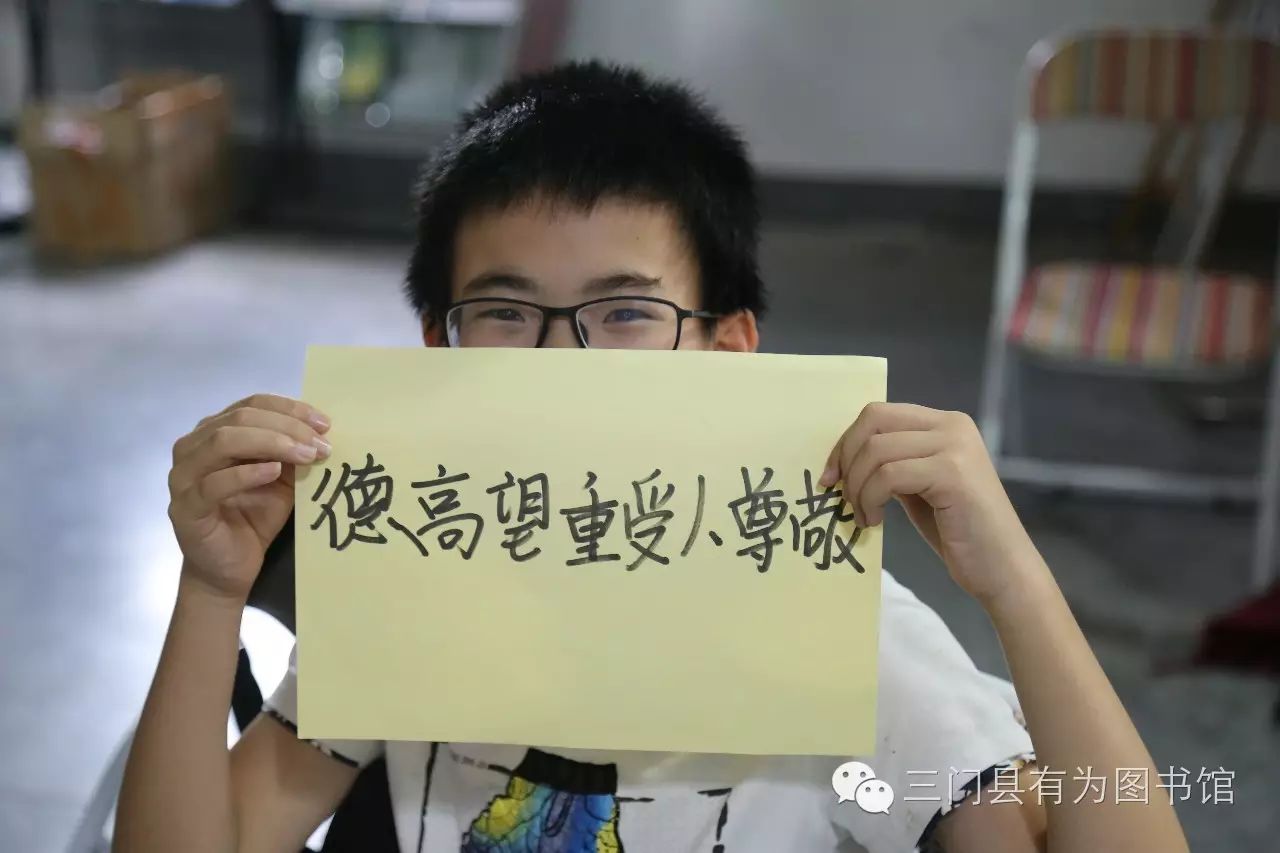 德高望重受人尊敬
三门县有为图书馆